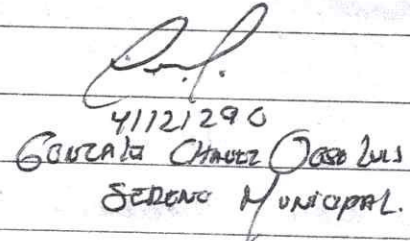 41121290
GONZALO CHAVEZ JOSE LUIS
SERENO MUNICIPAL.